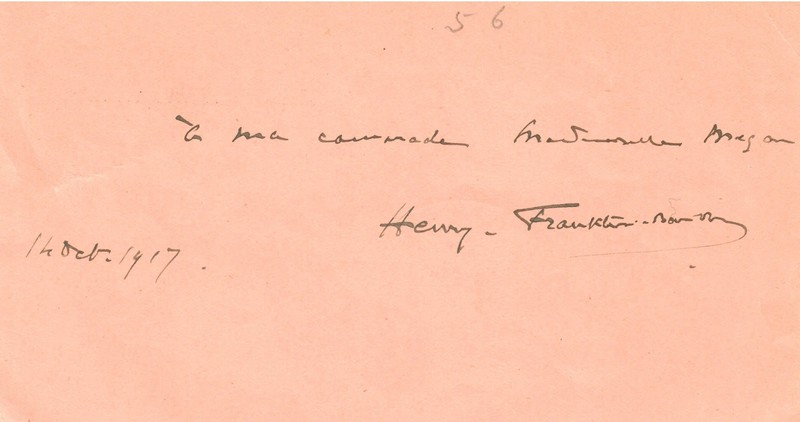 56
à ma camarade Mademoiselle Megan
Henry-Franklin-Bouillon
14 Oct. 1917.